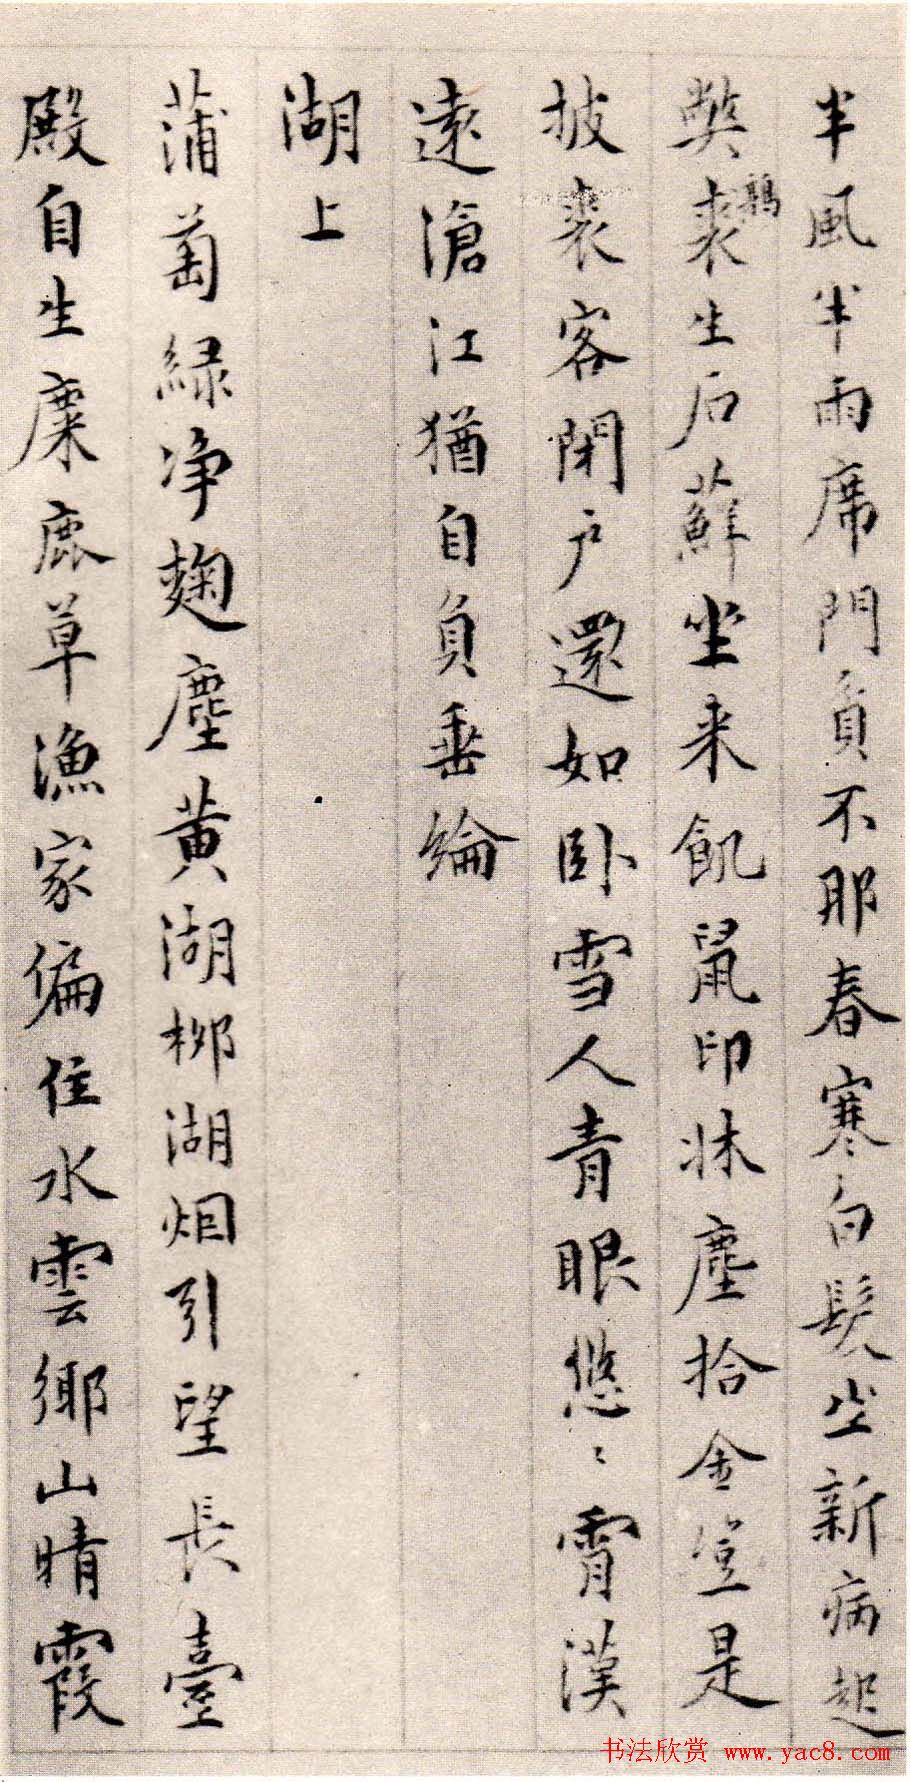 半風半雨席門負不那春寒白髮生新病起
弊裘鶉生石蘇坐来飢鼠印牀塵拾金豈是
披裘客閉户還如卧雪人青眼悠〻霄漢
遠滄江猶自負垂綸
湖上
蒲萄緑净麹塵黄湖柳湖烟引望長臺
殿自生麋鹿草漁家偏住水雲鄉山晴霞
书法欣赏 www.yac8.com